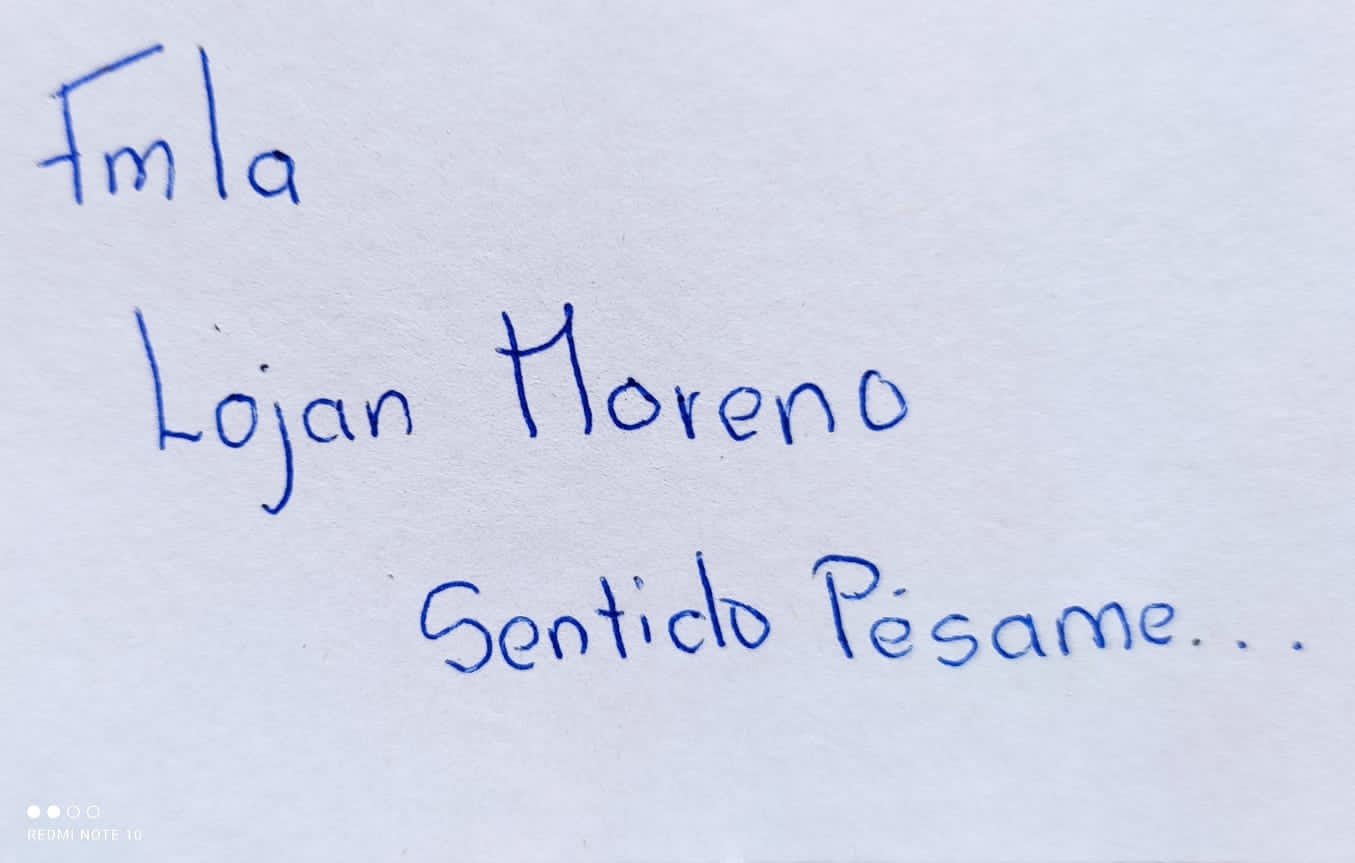 Fmla
Lojan Moreno
Sentido Pésame...
REDMI NOTE 10